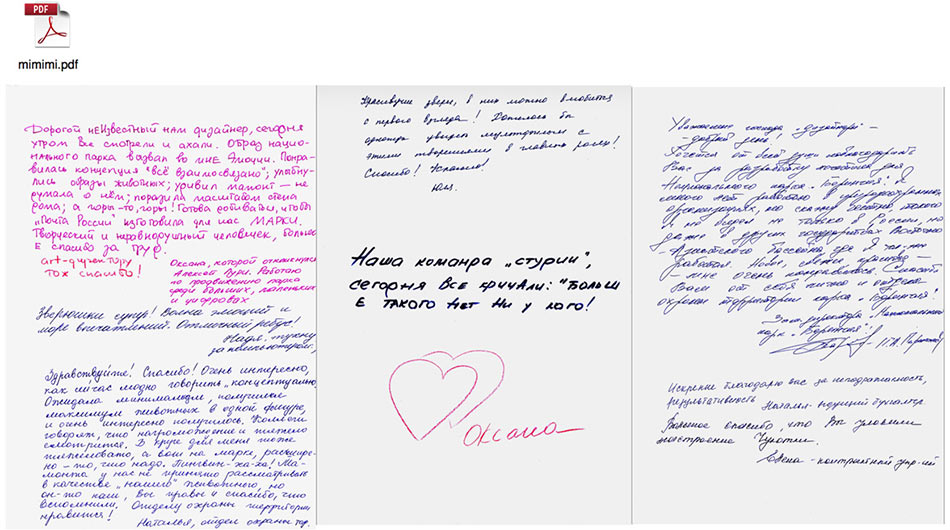 PDF
mimimi.pdf
Дорогой неизвестный нам дизайнер, сегодня
утром все смотрели и ахали. Образ нацио-
нального парка вызвал во мне эмоции. Понра-
вилась концепция "всё взаимосвязано"; улыбну-
лись образы животных; удивил мамонт — не
думала о нём; поразила масштабом стена
дома; а горы-то, горы! Готова добиваться, чтобы
"Почта России" изготовила для нас МАРКИ.
Творческий и неравнодушный человечек, больно
е спасибо за труд.
art-директору
тож спасибо!
Оксана, которой
Алексей Гури. Работаю
по продвижению парка
среди больших, маленьких
и цифровах
Зверюшки супер! Волна эмоций и
море впечатлений. Отличный ребус!
Надя.
за компьютером,
Здравствуйте! Спасибо! Очень интересно,
как сейчас модно говорить "концептуально
Ожидала минимализм, получили
максимум животных в одной фигуре,
и очень интересно получилось. Коллеги
говорят, что нагромождение и тяжело
смотрится. В круге для меня тоже
тяжеловато, а вот на марке, расшире-
но - то, что надо. Пингвин - ха-ха! Ма-
монта у нас не принято рассматривать
в качестве "нашего" животного, но
он-то наш, Вы правы и спасибо, что
вспомнили. Отделу охраны территории
нравится!
Наталья, отдел охраны тер.
Красивущие звери, в них можно влюбится
с первого взгляда! Хотелось бы
однажды увидеть мультфильм с
этими творениями в главных ролях!
Спасибо! Классно!
Юл.
Наша команда "студии",
сегодня все кричали: "Больш
е такого нет ни у кого!
Оксана
Уважаемые господа "дизайнеры" -
добрый день.
Хочется от всей души поблагодарить
Вас за разработку логотипа для
Национального парка "Берингия". Я
много лет работаю в природоохранных
организациях, но скажу честно такого
я не видел не только в России, но
даже в других государствах Восточно
Азиатского бассейна где я так-же
работал. Ново, свежо, красиво -
- мне очень понравилось. Спасибо
Вам от себя лично и отдела
охраны территории парка "Берингия"!
Зам. директора "Национального
парк "Берингия"
Искренне благодарю вас за неподражаемость,
результативность
Наталья - ведущий бухгалтер
Большое спасибо, что Вы уловили
настроение Чукотки.
Елена - контрактный упр-ий